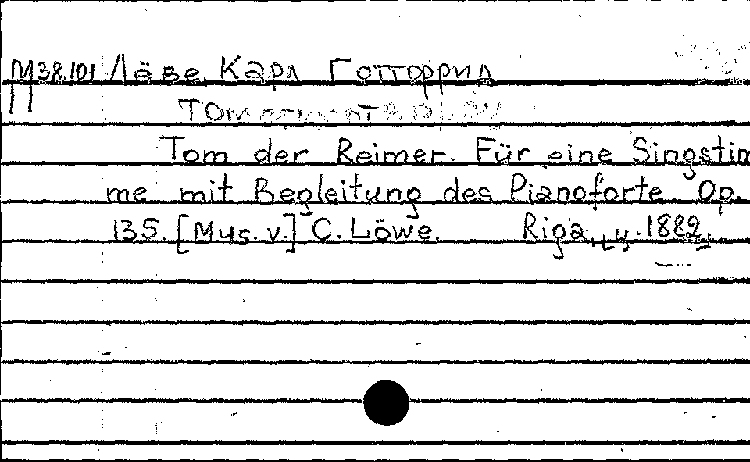 М38.101 Лёве, Карл Готтфрид
П
Tom der Reimer. Für eine Singstim
me mit Begleitung des Pianoforte Op.
135. [Mus. v.] C. Löwe. Riga, ц. 1882.